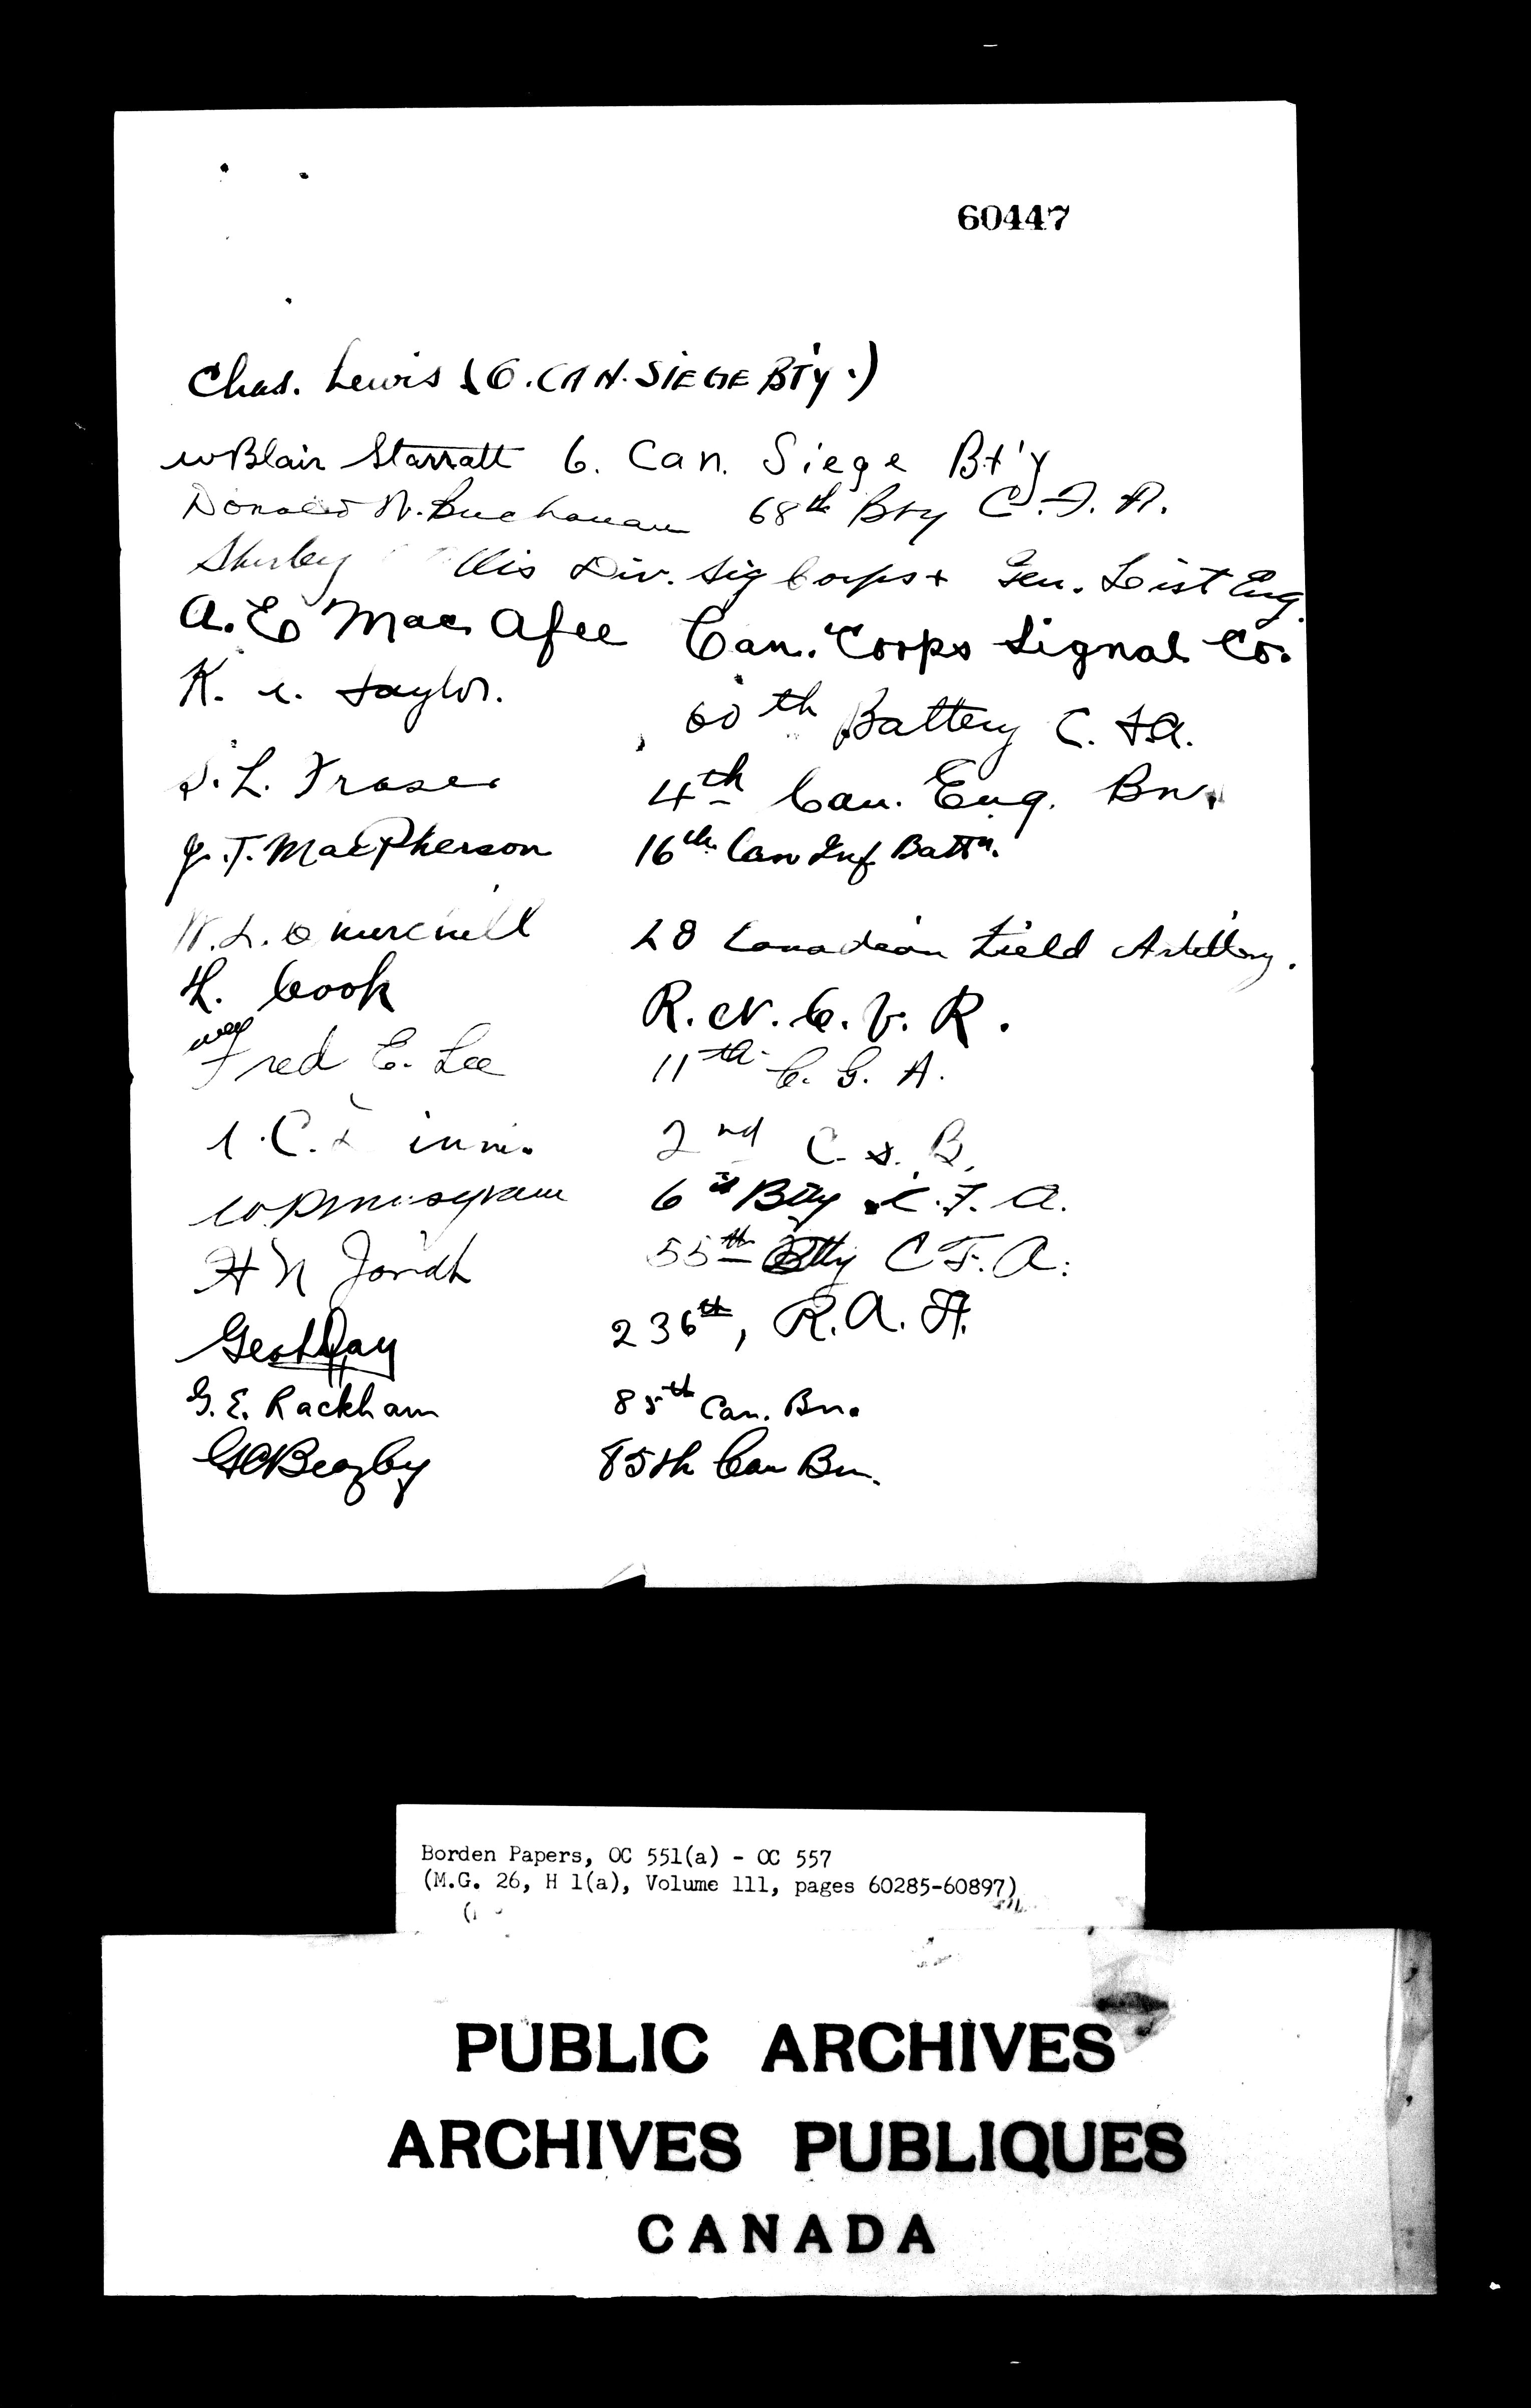 60447
Chas. Lewis (6. CAN. SIEGE BTY.)
W Blair Starratt 6. Can. Siege Bt'y
Donald N. Buchanan 68th Bty C.F.A.
Shirley Div. Sig Corps + Gen. List Eng.
A. E. MacAfee Can. Corps Signal Co.
K. Taylor. 60th Battery C. F.A.
L. Fraser 4th Can. Eng. Bn.
J. T. MacPherson 16th Can Inf Battn.
W. L. Churchill 28 Canadian Field Artillery.
H. Cook R. N. C. V. R.
Fred E. Lee 11th C. G. A.
C. 2nd C. B.
6th Bty C. F. A.
H N 55th Btty C F. A.
Geo H Day 236th, R. A. F.
G. E. Rackham 85th Can. Bn.
G C Beazley 85th Can Bn.
Borden Papers, OC 551(a) - OC 557
(M.G. 26, H 1(a), Volume 111, pages 60285-60897)
PUBLIC ARCHIVES
ARCHIVES PUBLIQUES
CANADA